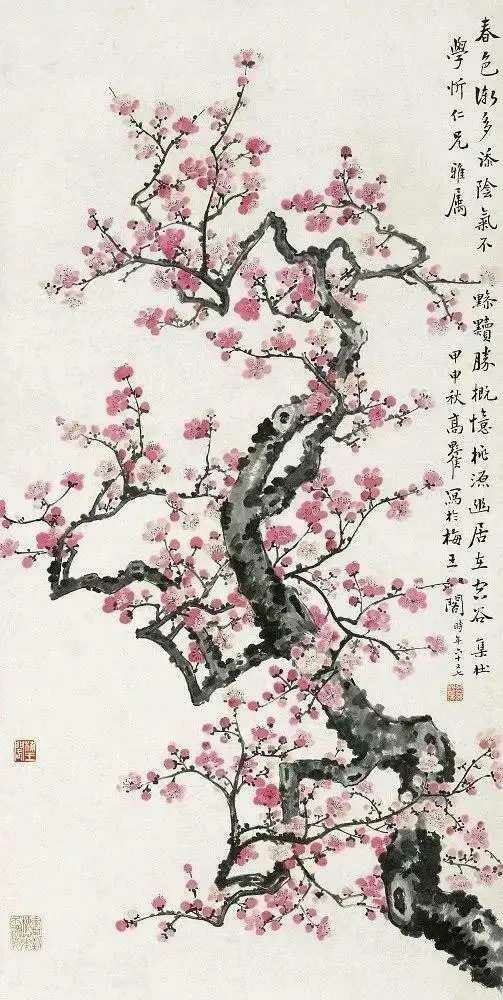 春色漸多添陰氣不黲黷勝概憶桃源幽居在空谷集杜
學忻仁兄雅屬
甲申秋高野侯寫於梅王閣時年六十又七